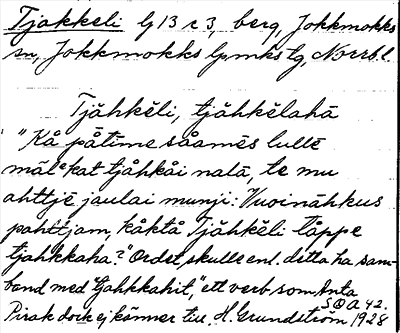 Tjakkeli lj 13 r 3, berg, Jokkmokks
sn, Jokkmokks lpmks tg, Norrb. l.
Tjåhkêli, tjåhkêlahå
"Kå påtime såamês lullê
målᵉkat tjåhkåi nalå, te mu
ahttjê jaulai munji: Vuoinåhkus
pahttjam, kåktå Tjåhkêli tåppe
tjahkkaha?" Ordet skulle enl. detta ha sam-
band med "tjahkkahit", ett verb som Anta
Pirak dock ej känner till. H. Grundström 1928
S@A 42.